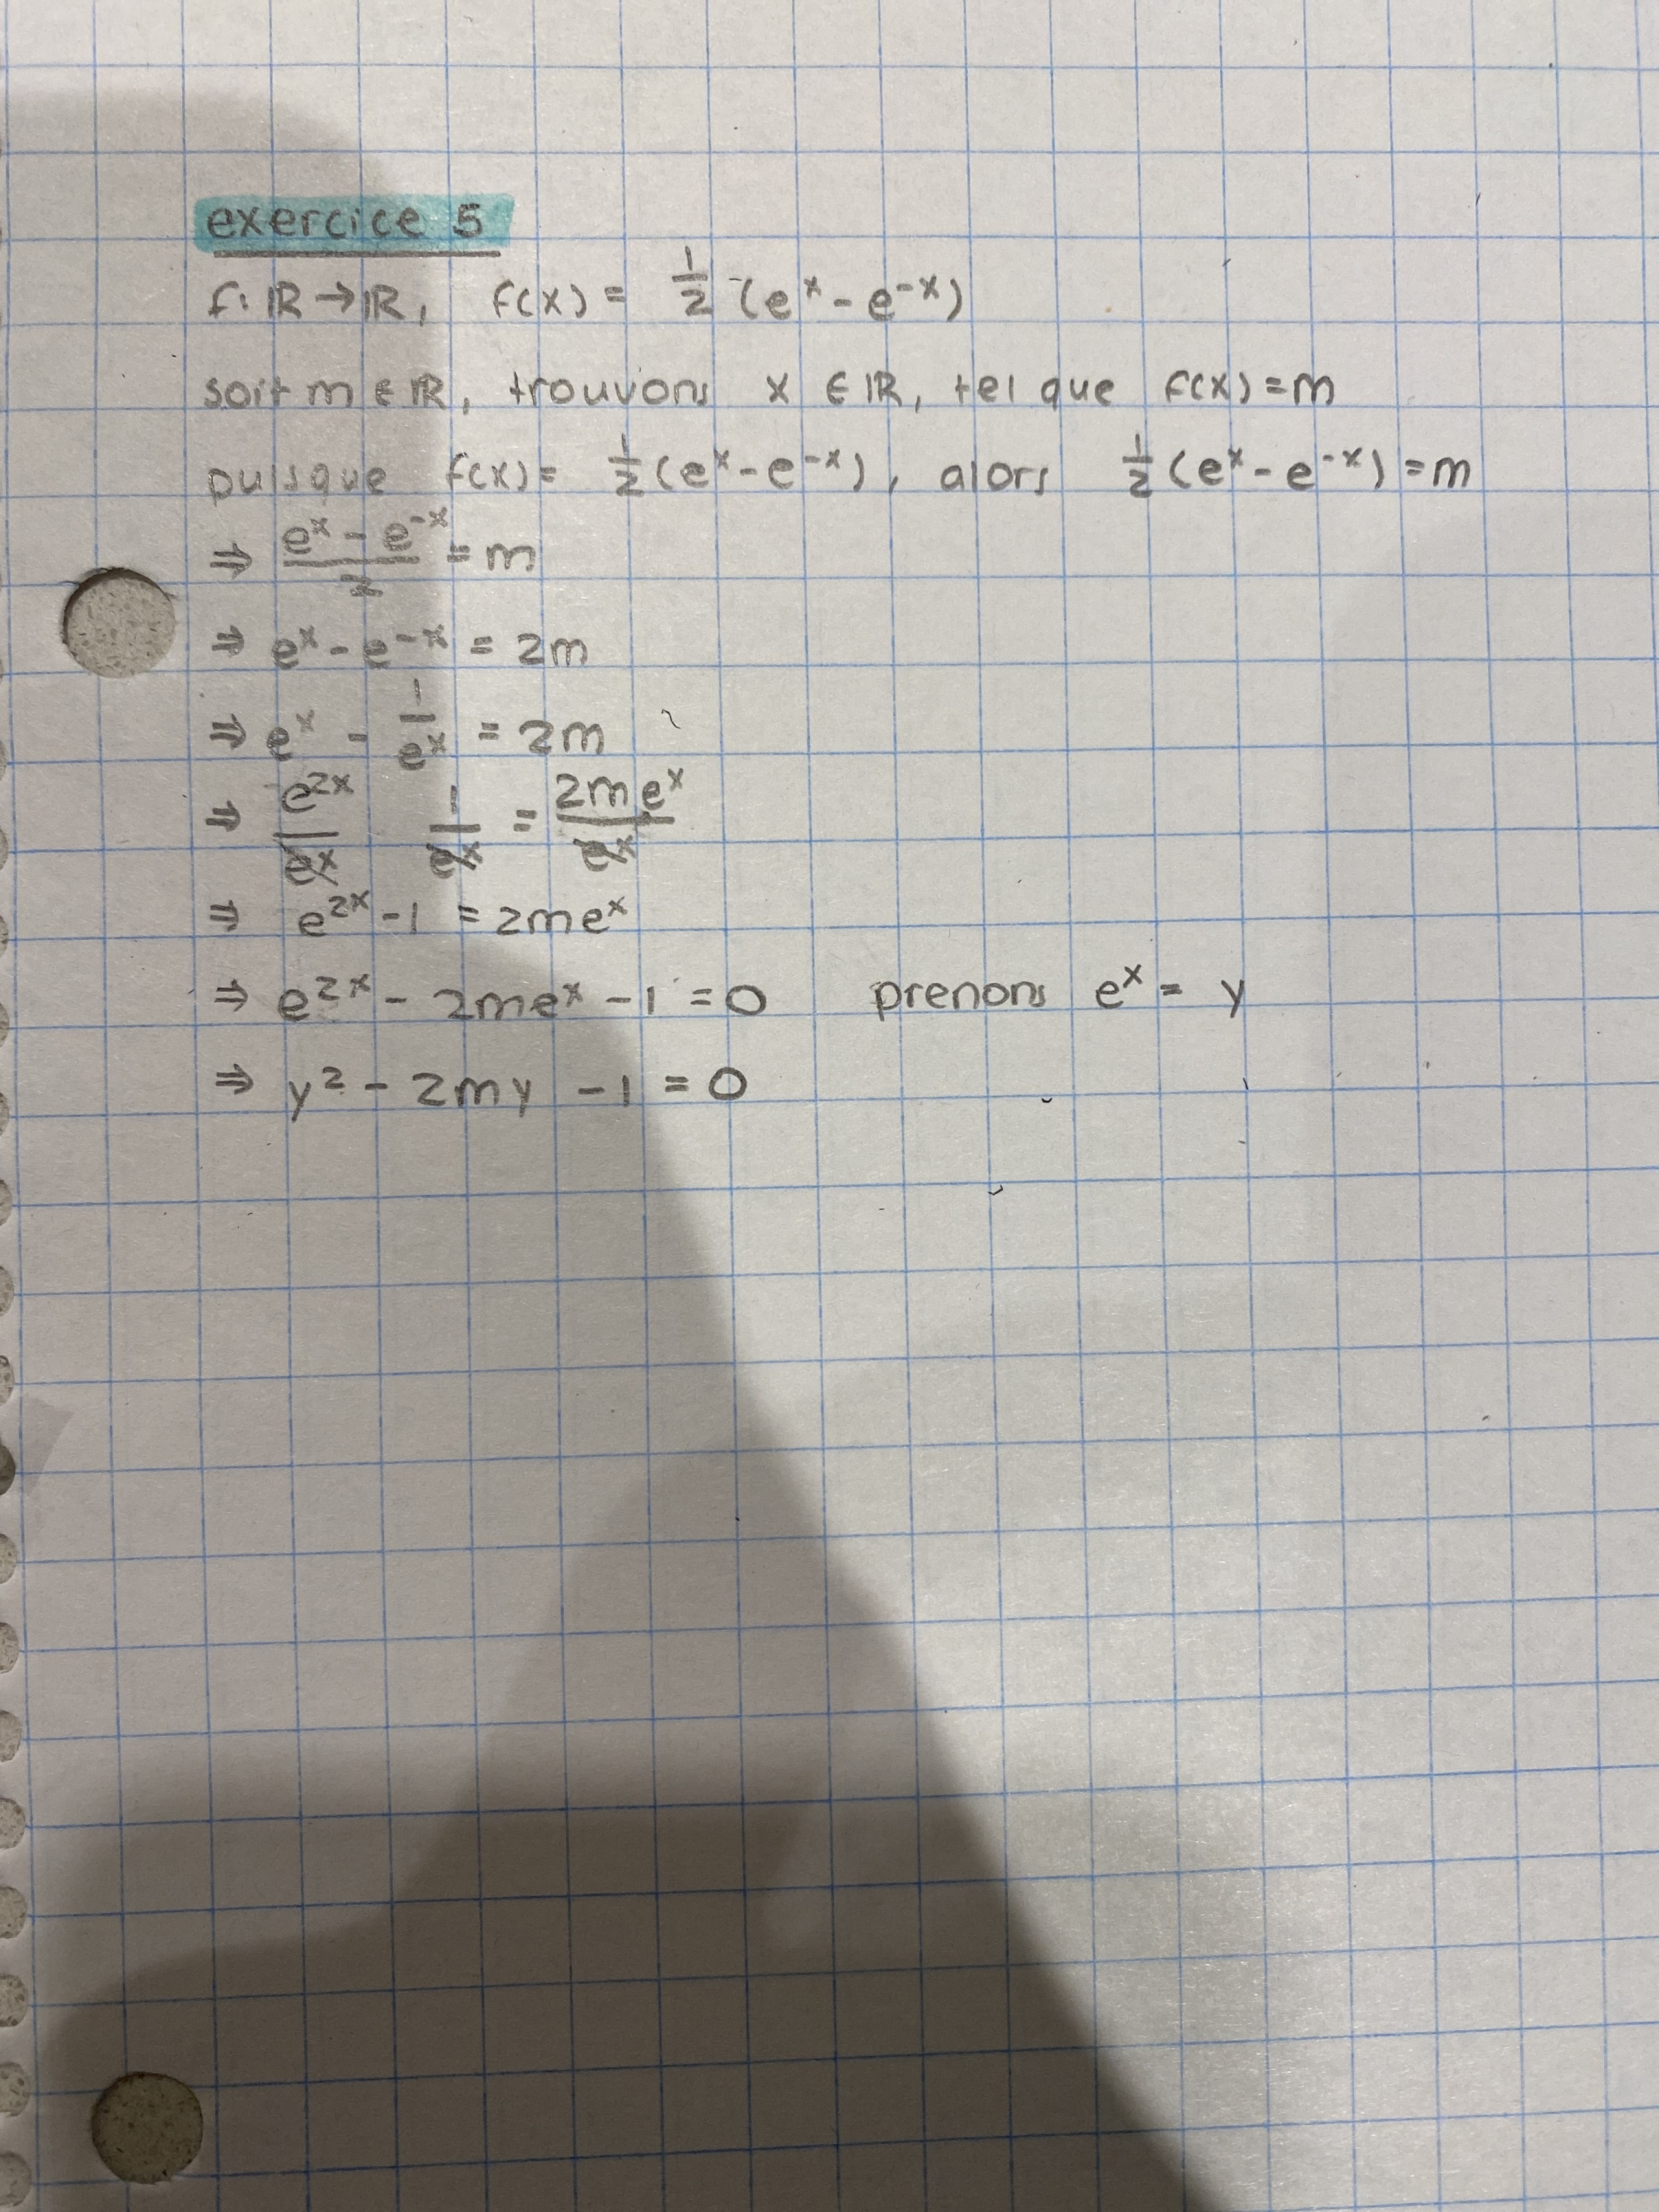 exercice 5
f: ℝ → ℝ, f(x) = 1/2 (e^x - e^-x)
soit m ∈ ℝ, trouvons x ∈ ℝ, tel que f(x) = m
puisque f(x) = 1/2 (e^x - e^-x), alors 1/2 (e^x - e^-x) = m
⇒ (e^x - e^-x)/2 = m
⇒ e^x - e^-x = 2m
⇒ e^x - 1/e^x = 2m
⇒ e^2x/e^x 1/e^x = 2me^x/e^x
⇒ e^2x - 1 = 2me^x
⇒ e^2x - 2me^x - 1 = 0 prenons e^x = y
⇒ y^2 - 2my - 1 = 0